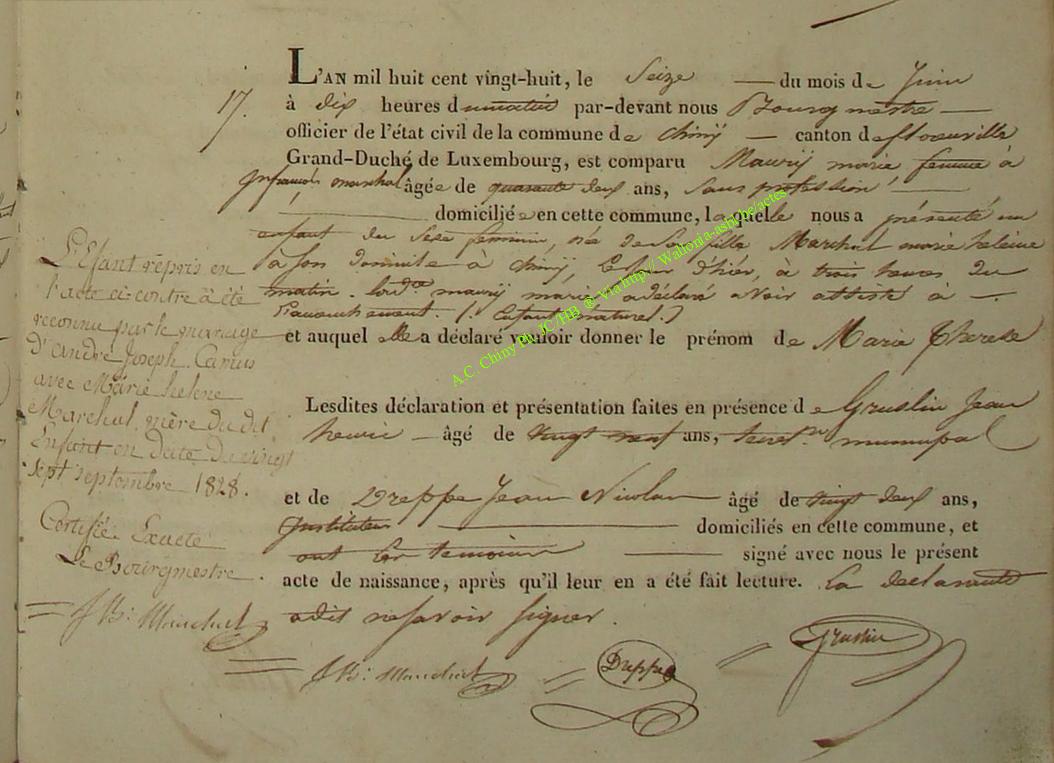 17.
L'AN mil huit cent vingt-huit, le Seize — du mois de Juin
à dix heures du matin par-devant nous Bourgmestre —
officier de l'état civil de la commune de Chiny — canton de florenville
Grand-Duché de Luxembourg, est comparu Maury marie femme à
françois marchal âgée de quarante deux ans, Sans profession —
domiciliée en cette commune, laquelle nous a présenté un
enfant du Sexe féminin, née de Sa fille Marchal marie helene
a Son domicile à Chiny, le jour d'hier, à trois heures du
matin. maury marie a déclaré avoir assisté à —
l'accouchement. (Enfant naturel.)
et auquel elle a déclaré vouloir donner le prénom de Maria Therese
Lesdites déclaration et présentation faites en présence de Gruslin Jean
henri — âgé de vingt neuf ans, Secret.re municipal
et de Dreppe Jean Nicolas — âgé de vingt deux ans,
Instituteur — domiciliés en cette commune, et
ont les temoins — signé avec nous le présent
acte de naissance, après qu'il leur en a été fait lecture. La declarante
a dit ne savoir signer.
L'Efant repris en
l'acte ci contre à été
reconnu par le mariage
D'andré Joseph Camus
avec Marie helene
Marchal, mère du dit
Enfant en date du vingt
sept septembre 1828.
Certifiée Exacte
Le Bourgmestre.
Marchal
Marchal
Dreppe
Gruslin
A.C. Chiny Ph. JC/HB @ Via http:// Wallonia-asbl.be/actes